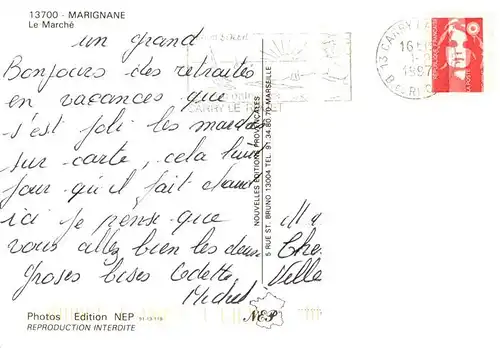 13700 - MARIGNANE
Le Marché
un grand
Bonjours des retraités
en vacances que
s'est joli les
sur carte, cela
jour qu'il fait chaud
ici je pense que
vous allez bien les deux
Groses bises Odette
Michel
CARRY LE ROUET
REPUBLIQUE FRANÇAISE
LA POSTE
13 CARRY
1997
B. DU R.
NOUVELLES EDITIONS PROVENÇALES
5 RUE ST. BRUNO 13004 TEL 91.34.80.70 - MARSEILLE
Photos Edition NEP
REPRODUCTION INTERDITE
NEP